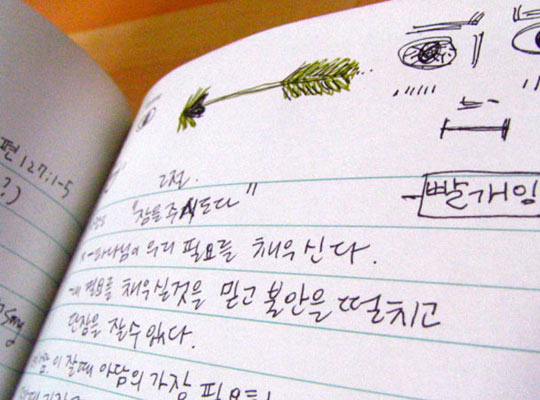 편 127:1-5
?)
2절.
"잠을 주시도다"
빨개잉
하나님이 우리 필요를 채우신다.
내 필요를 채우실것을 믿고 불안을 떨치고
단잠을 잘수있다.
이 잘때 아담의 가장 필요